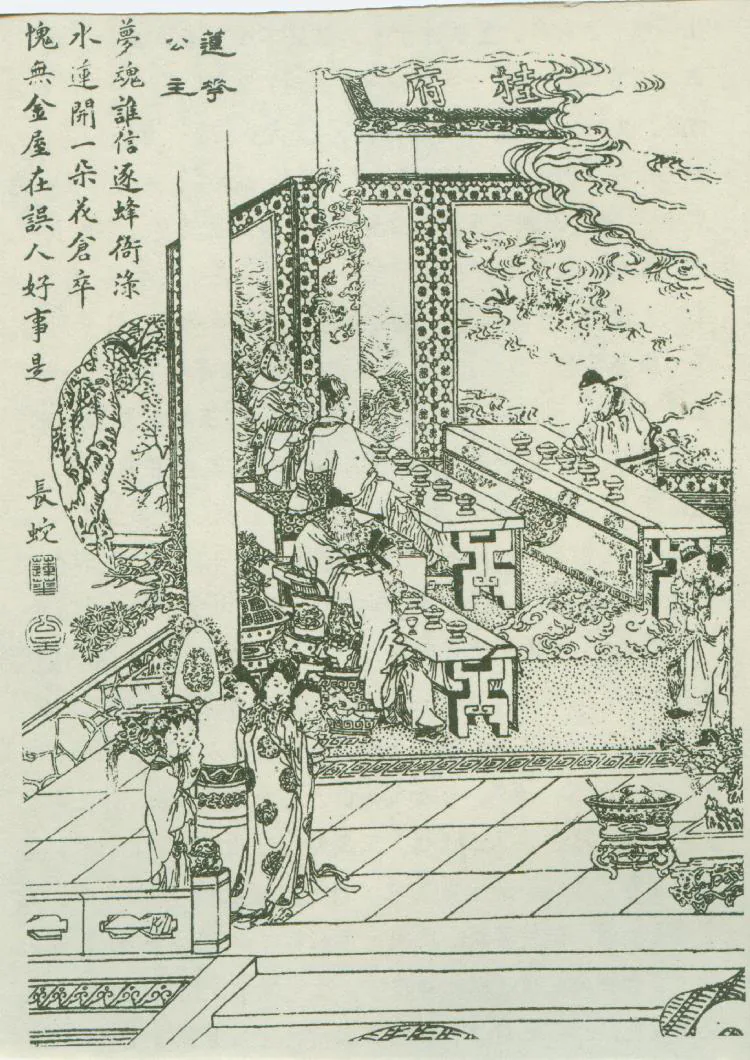 桂府
蓮華
公主
夢魂誰信逐蜂衙淥
水蓮開一朵花倉卒
愧無金屋在誤人好事是
長蛇
蓮華
公主